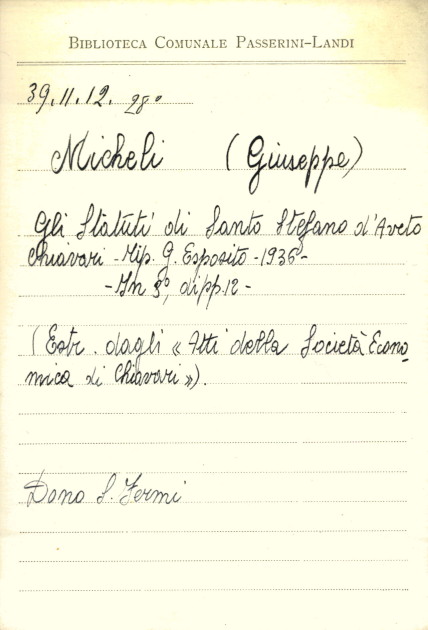 BIBLIOTECA COMUNALE PASSERINI-LANDI
39.11.12. 28°
Micheli (Giuseppe)
Gli Statuti di Santo Stefano d'Aveto
Chiavari - Tip. G. Esposito - 1936 -
- In 8°, di pp. 12 -
(Estr. dagli « Atti della Società Econo-
mica di Chiavari »).
Dono S. Fermi